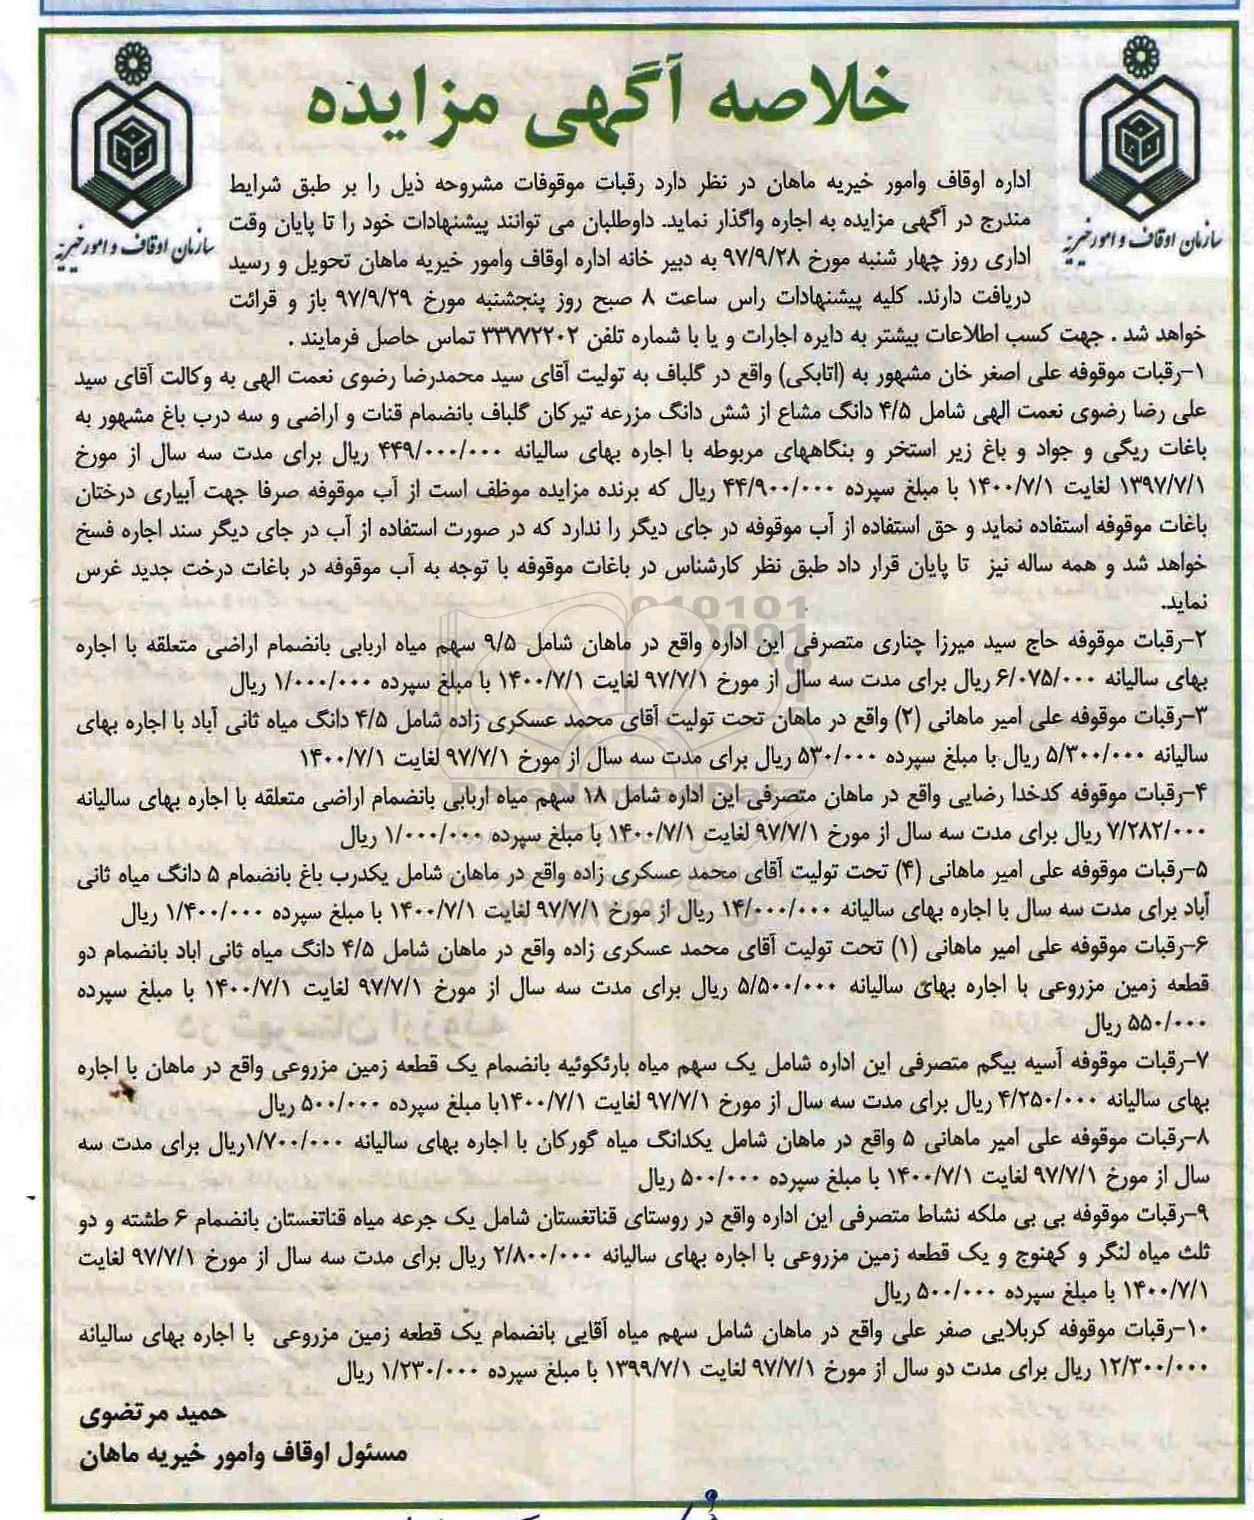 خلاصه آگهی مزایده
سازمان اوقاف و امور خیریه
سازمان اوقاف و امور خیریه
اداره اوقاف وامور خیریه ماهان در نظر دارد رقبات موقوفات مشروحه ذیل را بر طبق شرایط
مندرج در آگهی مزایده به اجاره واگذار نماید. داوطلبان می توانند پیشنهادات خود را تا پایان وقت
اداری روز چهار شنبه مورخ ۹۷/۹/۲۸ به دبیر خانه اداره اوقاف وامور خیریه ماهان تحویل و رسید
دریافت دارند. کلیه پیشنهادات راس ساعت ۸ صبح روز پنجشنبه مورخ ۹۷/۹/۲۹ باز و قرائت
خواهد شد . جهت کسب اطلاعات بیشتر به دایره اجارات و یا با شماره تلفن ۳۳۷۷۲۲۰۲ تماس حاصل فرمایند .
۱-رقبات موقوفه علی اصغر خان مشهور به (اتابکی) واقع در گلباف به تولیت آقای سید محمدرضا رضوی نعمت الهی به وکالت آقای سید
علی رضا رضوی نعمت الهی شامل ۴/۵ دانگ مشاع از شش دانگ مزرعه تیرکان گلباف بانضمام قنات و اراضی و سه درب باغ مشهور به
باغات ریگی و جواد و باغ زیر استخر و بنگاههای مربوطه با اجاره بهای سالیانه ۴۴۹/۰۰۰/۰۰۰ ریال برای مدت سه سال از مورخ
۱۳۹۷/۷/۱ لغایت ۱۴۰۰/۷/۱ با مبلغ سپرده ۴۴/۹۰۰/۰۰۰ ریال که برنده مزایده موظف است از آب موقوفه صرفا جهت آبیاری درختان
باغات موقوفه استفاده نماید و حق استفاده از آب موقوفه در جای دیگر را ندارد که در صورت استفاده از آب در جای دیگر سند اجاره فسخ
خواهد شد و همه ساله نیز تا پایان قرار داد طبق نظر کارشناس در باغات موقوفه با توجه به آب موقوفه در باغات درخت جدید غرس
نماید.
۲-رقبات موقوفه حاج سید میرزا چناری متصرفی این اداره واقع در ماهان شامل ۹/۵ سهم میاه اربابی بانضمام اراضی متعلقه با اجاره
بهای سالیانه ۶/۰۷۵/۰۰۰ ریال برای مدت سه سال از مورخ ۹۷/۷/۱ لغایت ۱۴۰۰/۷/۱ با مبلغ سپرده ۱/۰۰۰/۰۰۰ ریال
۳-رقبات موقوفه علی امیر ماهانی (۲) واقع در ماهان تحت تولیت آقای محمد عسکری زاده شامل ۴/۵ دانگ میاه ثانی آباد با اجاره بهای
سالیانه ۵/۳۰۰/۰۰۰ ریال با مبلغ سپرده ۵۳۰/۰۰۰ ریال برای مدت سه سال از مورخ ۹۷/۷/۱ لغایت ۱۴۰۰/۷/۱
۴-رقبات موقوفه کدخدا رضایی واقع در ماهان متصرفی این اداره شامل ۱۸ سهم میاه اربابی بانضمام اراضی متعلقه با اجاره بهای سالیانه
۷/۲۸۲/۰۰۰ ریال برای مدت سه سال از مورخ ۹۷/۷/۱ لغایت ۱۴۰۰/۷/۱ با مبلغ سپرده ۱/۰۰۰/۰۰۰ ریال
۵-رقبات موقوفه علی امیر ماهانی (۴) تحت تولیت آقای محمد عسکری زاده واقع در ماهان شامل یکدرب باغ بانضمام ۵ دانگ میاه ثانی
آباد برای مدت سه سال با اجاره بهای سالیانه ۱۴/۰۰۰/۰۰۰ ریال از مورخ ۹۷/۷/۱ لغایت ۱۴۰۰/۷/۱ با مبلغ سپرده ۱/۴۰۰/۰۰۰ ریال
۶-رقبات موقوفه علی امیر ماهانی (۱) تحت تولیت آقای محمد عسکری زاده واقع در ماهان شامل ۴/۵ دانگ میاه ثانی اباد بانضمام دو
قطعه زمین مزروعی با اجاره بهای سالیانه ۵/۵۰۰/۰۰۰ ریال برای مدت سه سال از مورخ ۹۷/۷/۱ لغایت ۱۴۰۰/۷/۱ با مبلغ سپرده
۵۵۰/۰۰۰ ریال
۷-رقبات موقوفه آسیه بیگم متصرفی این اداره شامل یک سهم میاه بارئکوئیه بانضمام یک قطعه زمین مزروعی واقع در ماهان با اجاره
بهای سالیانه ۴/۲۵۰/۰۰۰ ریال برای مدت سه سال از مورخ ۹۷/۷/۱ لغایت ۱۴۰۰/۷/۱با مبلغ سپرده ۵۰۰/۰۰۰ ریال
۸-رقبات موقوفه علی امیر ماهانی ۵ واقع در ماهان شامل یکدانگ میاه گورکان با اجاره بهای سالیانه ۱/۷۰۰/۰۰۰ریال برای مدت سه
سال از مورخ ۹۷/۷/۱ لغایت ۱۴۰۰/۷/۱ با مبلغ سپرده ۵۰۰/۰۰۰ ریال
۹-رقبات موقوفه بی بی ملکه نشاط متصرفی این اداره واقع در روستای قناتغستان شامل یک جرعه میاه قناتغستان بانضمام ۶ طشته و دو
ثلث میاه لنگر و کهنوج و یک قطعه زمین مزروعی با اجاره بهای سالیانه ۲/۸۰۰/۰۰۰ ریال برای مدت سه سال از مورخ ۹۷/۷/۱ لغایت
۱۴۰۰/۷/۱ با مبلغ سپرده ۵۰۰/۰۰۰ ریال
۱۰-رقبات موقوفه کربلایی صفر علی واقع در ماهان شامل سهم میاه آقایی بانضمام یک قطعه زمین مزروعی با اجاره بهای سالیانه
۱۲/۳۰۰/۰۰۰ ریال برای مدت دو سال از مورخ ۹۷/۷/۱ لغایت ۱۳۹۹/۷/۱ با مبلغ سپرده ۱/۲۳۰/۰۰۰ ریال
حمید مرتضوی
مسئول اوقاف وامور خیریه ماهان